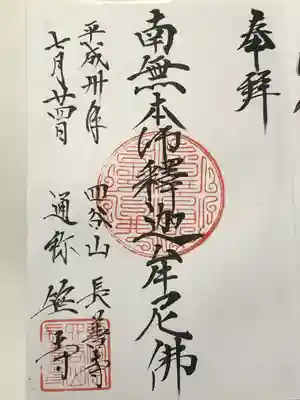 奉拝
南無本師釋迦牟尼佛
平成卅年 四谷山 長善寺
七月廿四日 通称 笹寺